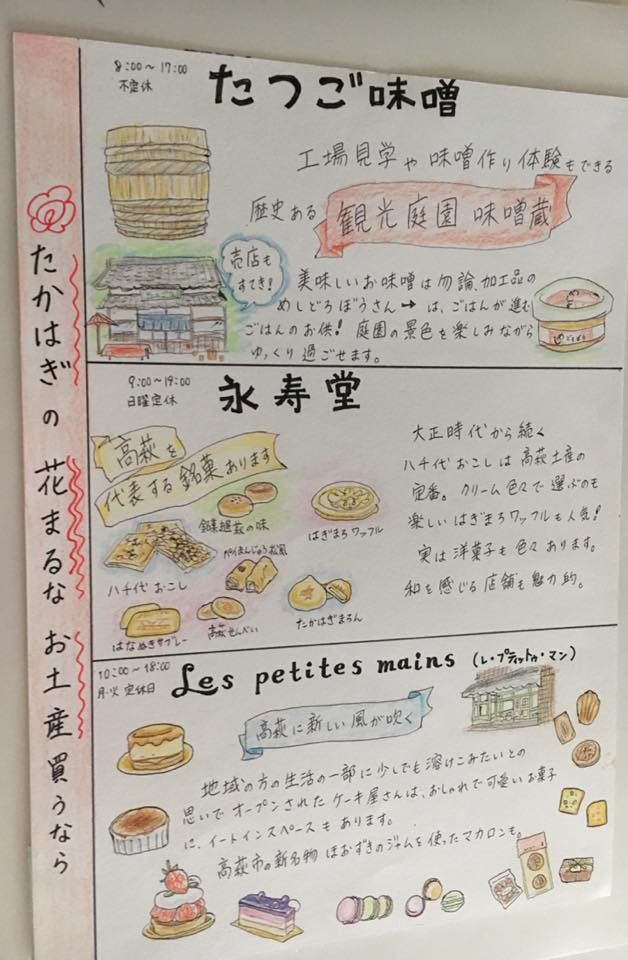 たかはぎの花まるなお土産買うなら
8:00～17:00
不定休
たつご味噌
工場見学や味噌作り体験もできる
歴史ある
観光庭園 味噌蔵
売店も
すてき!
美味しいお味噌は勿論、加工品の
めしどろぼうさん→は、ごはんが進む
ごはんのお供! 庭園の景色を楽しみながら
ゆっくり過ごせます。
9:00～19:00
日曜定休
永寿堂
高萩を
代表する銘菓あります
大正時代から続く
八千代おこしは高萩土産の
定番。クリーム色々で選ぶのも
楽しいはぎまろワッフルも人気!
実は洋菓子も色々あります。
和を感じる店舗も魅力的。
はぎまろワッフル
八千代おこし
はなぬきサブレー
高萩せんべい
たかはぎまろん
10:00～18:00
月・火 定休日
Les petites mains (レ・プティットゥ・マン)
高萩に新しい風が吹く
地域の方の生活の一部に少しでも溶けこみたいとの
思いでオープンされたケーキ屋さんは、おしゃれで可愛いお菓子
に、イートインスペースもあります。
高萩市の新名物 ほおずきのジャムを使ったマカロンも。